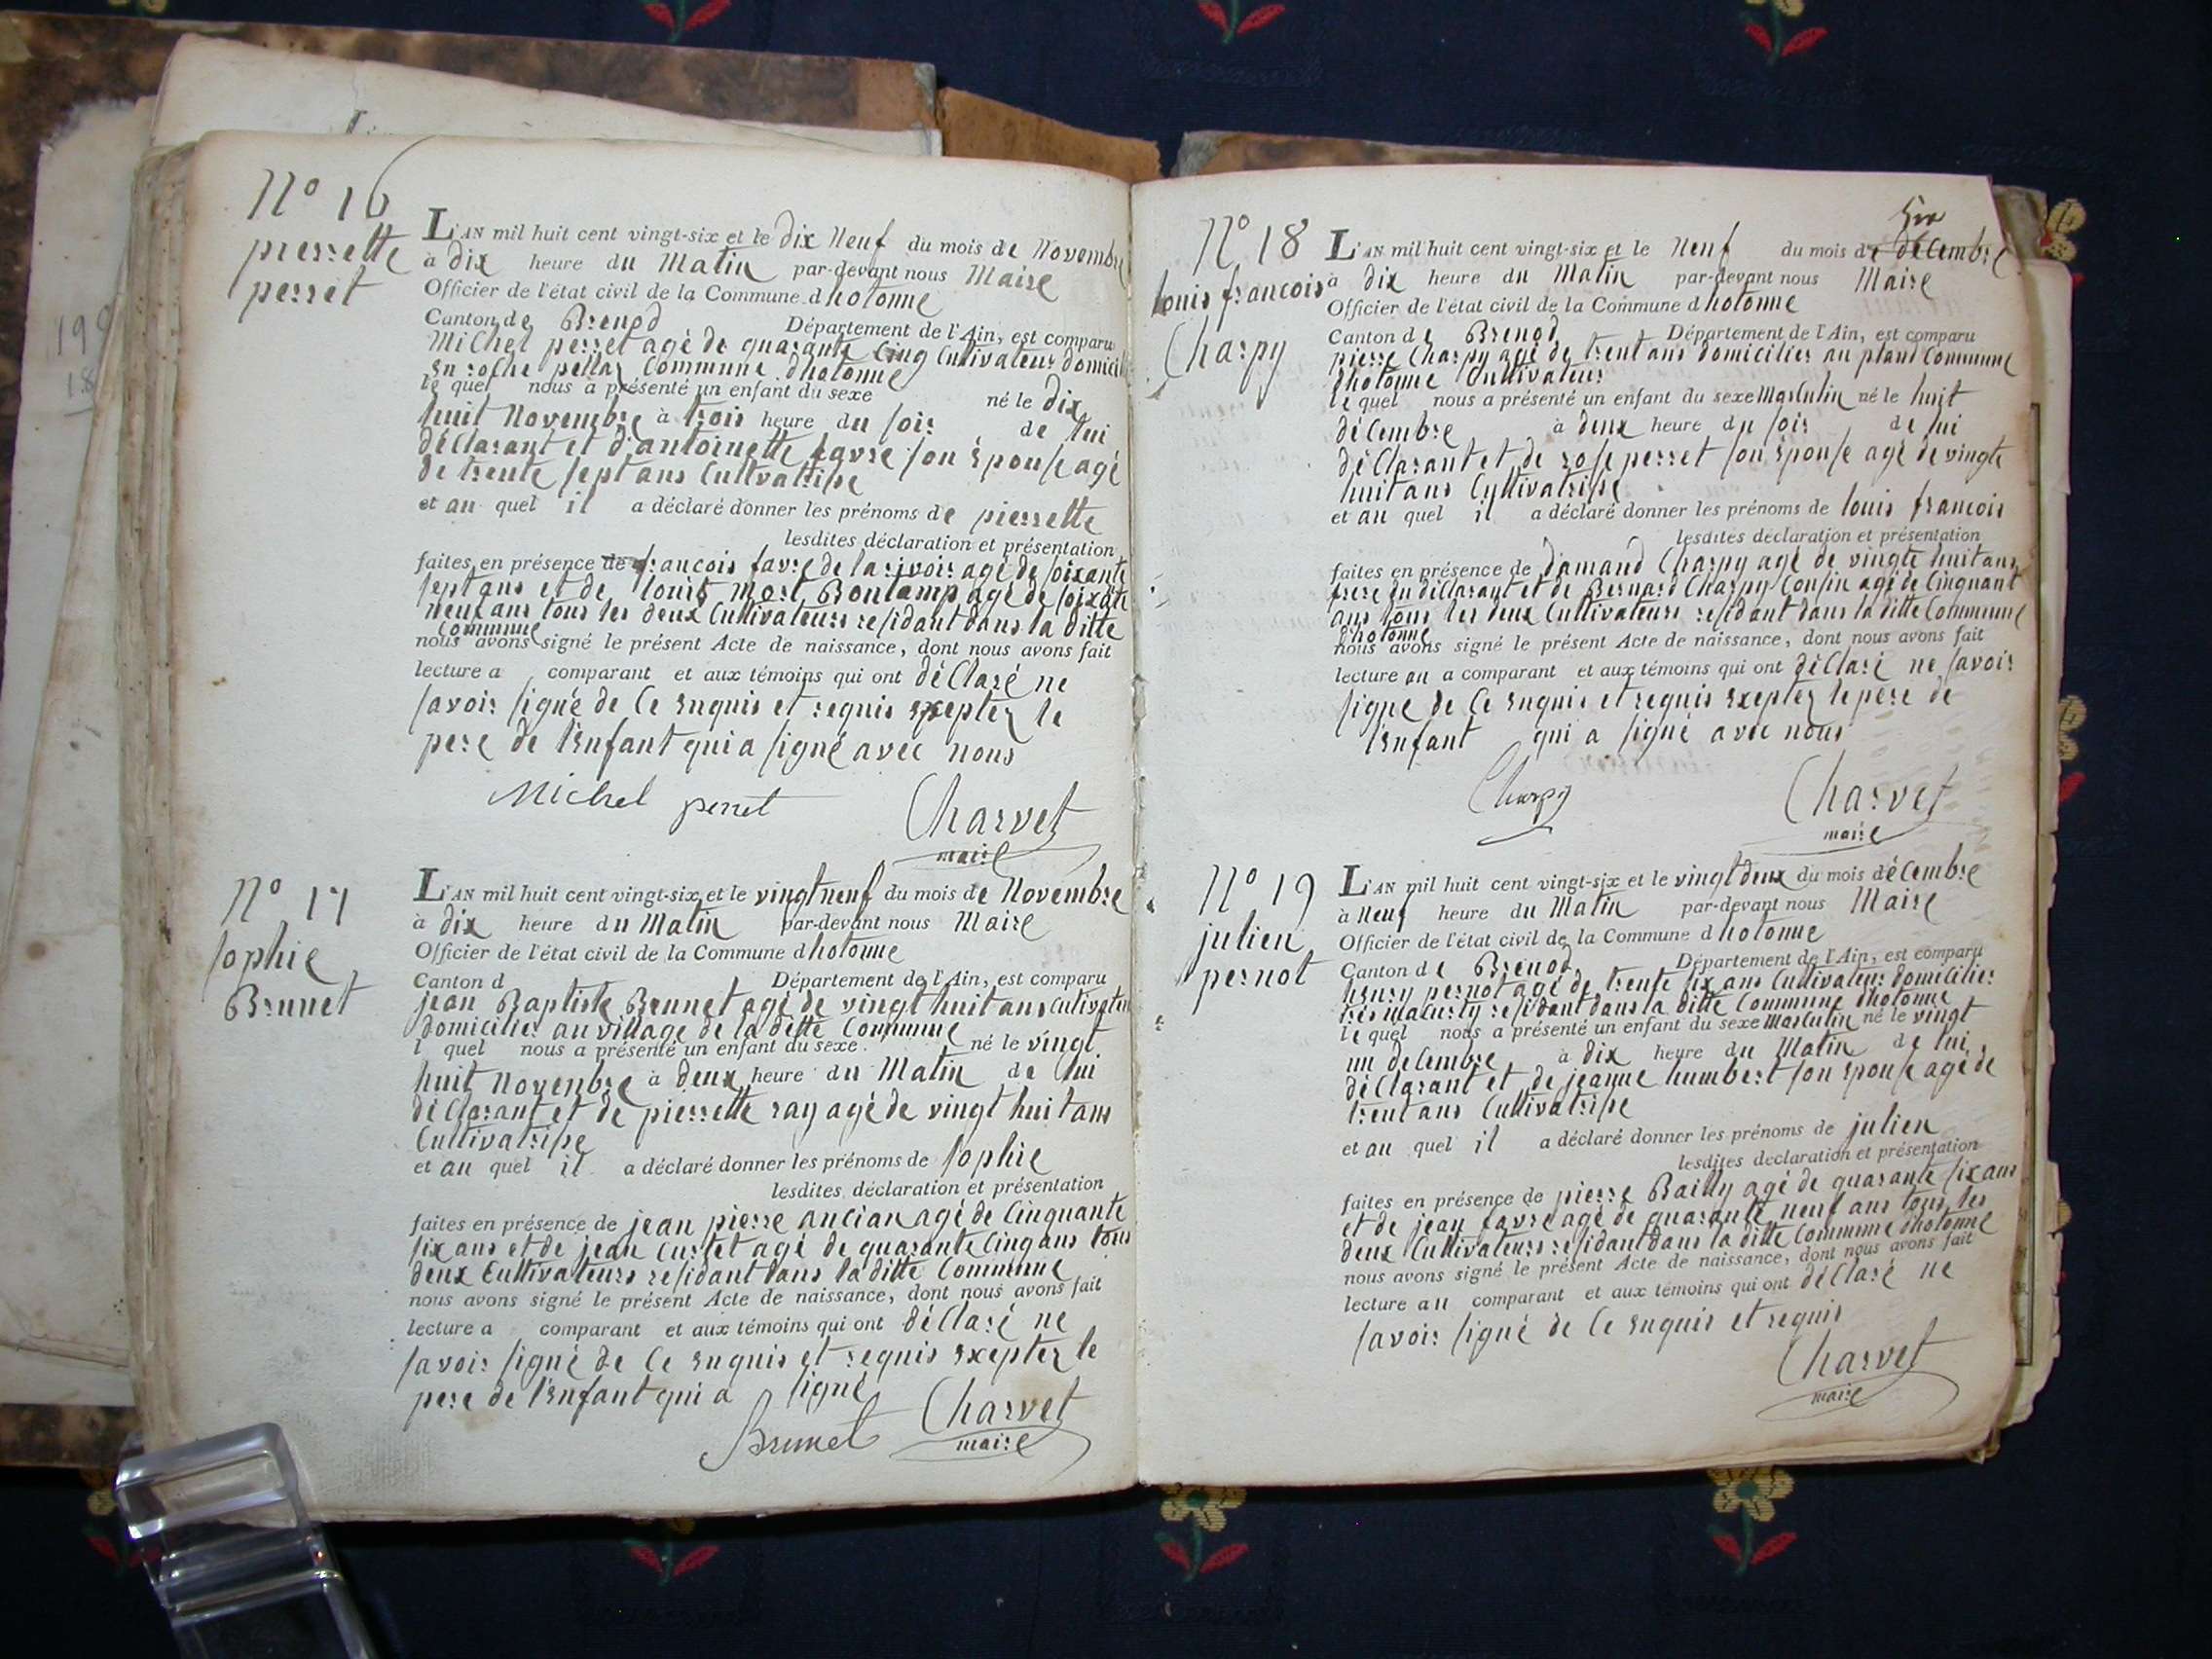 N° 16
pierrette
perret
L'AN mil huit cent vingt-six et le dix neuf du mois de Novembre
à dix heure du Matin par-devant nous Maire
Officier de l'état civil de la Commune d hotonne
Canton de Brenod Département de l'Ain, est comparu
Michel perret agé de quarante Cinq Cultivateur domicil
en roche pellaz Commune dhotonne
le quel nous a présenté un enfant du sexe né le dix
huit Novembre à trois heure du soir de lui
déClarant et d'antoinette favre son épouse agé
de trente sept ans Cultvatrise
et au quel il a déclaré donner les prénoms de pierrette
lesdites déclaration et présentation
faites en présence de francois favre de la rivoir agé de soixante
sept ans et de louis Mort Bontamp agé de soixate
neuf ans tous les deux Cultivateurs residant dans la ditte
Commune
nous avons signé le présent Acte de naissance, dont nous avons fait
lecture a comparant et aux témoins qui ont déClaré ne
savoir signé de Ce enquis et requis exeptez le
pere de l'enfant qui a signé avec nous
Michel perret Charvet
maire
N° 17
sophie
Brunet
L'AN mil huit cent vingt-six et le vingt neuf du mois de Novembre
à dix heure du Matin par-devant nous Maire
Officier de l'état civil de la Commune d hotonne
Canton d Département de l'Ain, est comparu
jean Baptiste Brunet agé de vingt huit ans Cutivateu
domicilier au village de la ditte Commune
l quel nous a présenté un enfant du sexe né le vingt
huit Novenbre à deux heure du Matin de lui
déClarant et de pierrette ray agé de vingt huit ans
Cultivatrise
et au quel il a déclaré donner les prénoms de sophie
lesdites déclaration et présentation
faites en présence de jean pierre ancian agé de Cinquante
six ans et de jean Curtet agé de quarante Cinq ans tous
deux Cultivateurs residant dans la ditte Commune
nous avons signé le présent Acte de naissance, dont nous avons fait
lecture a comparant et aux témoins qui ont déClaré ne
savoir signé de Ce enquis et requis exeptez le
pere de l'enfant qui a signé
Brunet Charvet
maire
N° 18
louis francois
Charpy
L'AN mil huit cent vingt-six et le neuf du mois de décembre
à dix heure du Matin par-devant nous Maire
Officier de l'état civil de la Commune d hotonne
Canton de Brenod Département de l'Ain, est comparu
pierre Charpy agé de trent ans domicilier au pland Commune
dhotonne Cultivateur
le quel nous a présenté un enfant du sexe Masculin né le huit
décembre à deux heure du soir de lui
déClarant et de rose perret son épouse agé de vingte
huit ans Cultivatrise
et au quel il a déclaré donner les prénoms de louis francois
lesdites déclaration et présentation
faites en présence de damand Charpy agé de vingte huit ans
frere du déClarant et de Bernard Charpy Cousin agé de Cinquant
ans tous les deux Cultivateurs residant dans la ditte Commune
dhotonne
nous avons signé le présent Acte de naissance, dont nous avons fait
lecture au a comparant et aux témoins qui ont déClaré ne savoir
signe de Ce enquis et requis exeptez le pere de
l'enfant qui a signé avec nous
Charpy Charvet
maire
N° 19
julien
pernot
L'AN mil huit cent vingt-six et le vingt deux du mois décembre
à Neuf heure du Matin par-devant nous Maire
Officier de l'état civil de la Commune d hotonne
Canton de Brenod Département de l'Ain, est comparu
henry pernot agé de trente six ans Cultivateur domicilier
residant dans la ditte Commune dhotonne
le quel nous a présenté un enfant du sexe Masculin né le vingt
un decembre à dix heure du Matin de lui
déClarant et de jeanne humbert son epouse agé de
trent ans Cultivatrise
et au quel il a déclaré donner les prénoms de julien
lesdites déclaration et présentation
faites en présence de pierre Bailly agé de quarante six ans
et de jean favre agé de quarante neuf ans tous les
deux Cultivateurs residant dans la ditte Commune dhotonne
nous avons signé le présent Acte de naissance, dont nous avons fait
lecture au comparant et aux témoins qui ont déClaré ne
savoir signé de Ce enquis et requis
Charvet
maire